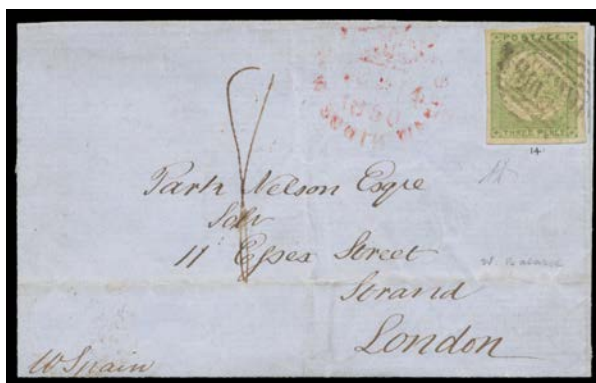 POSTAGE
THREE PENCE
14
1850
SOUTH WALES
Park Nelson Esqre
Solr
11 Essex Street
Strand
London
W Spain